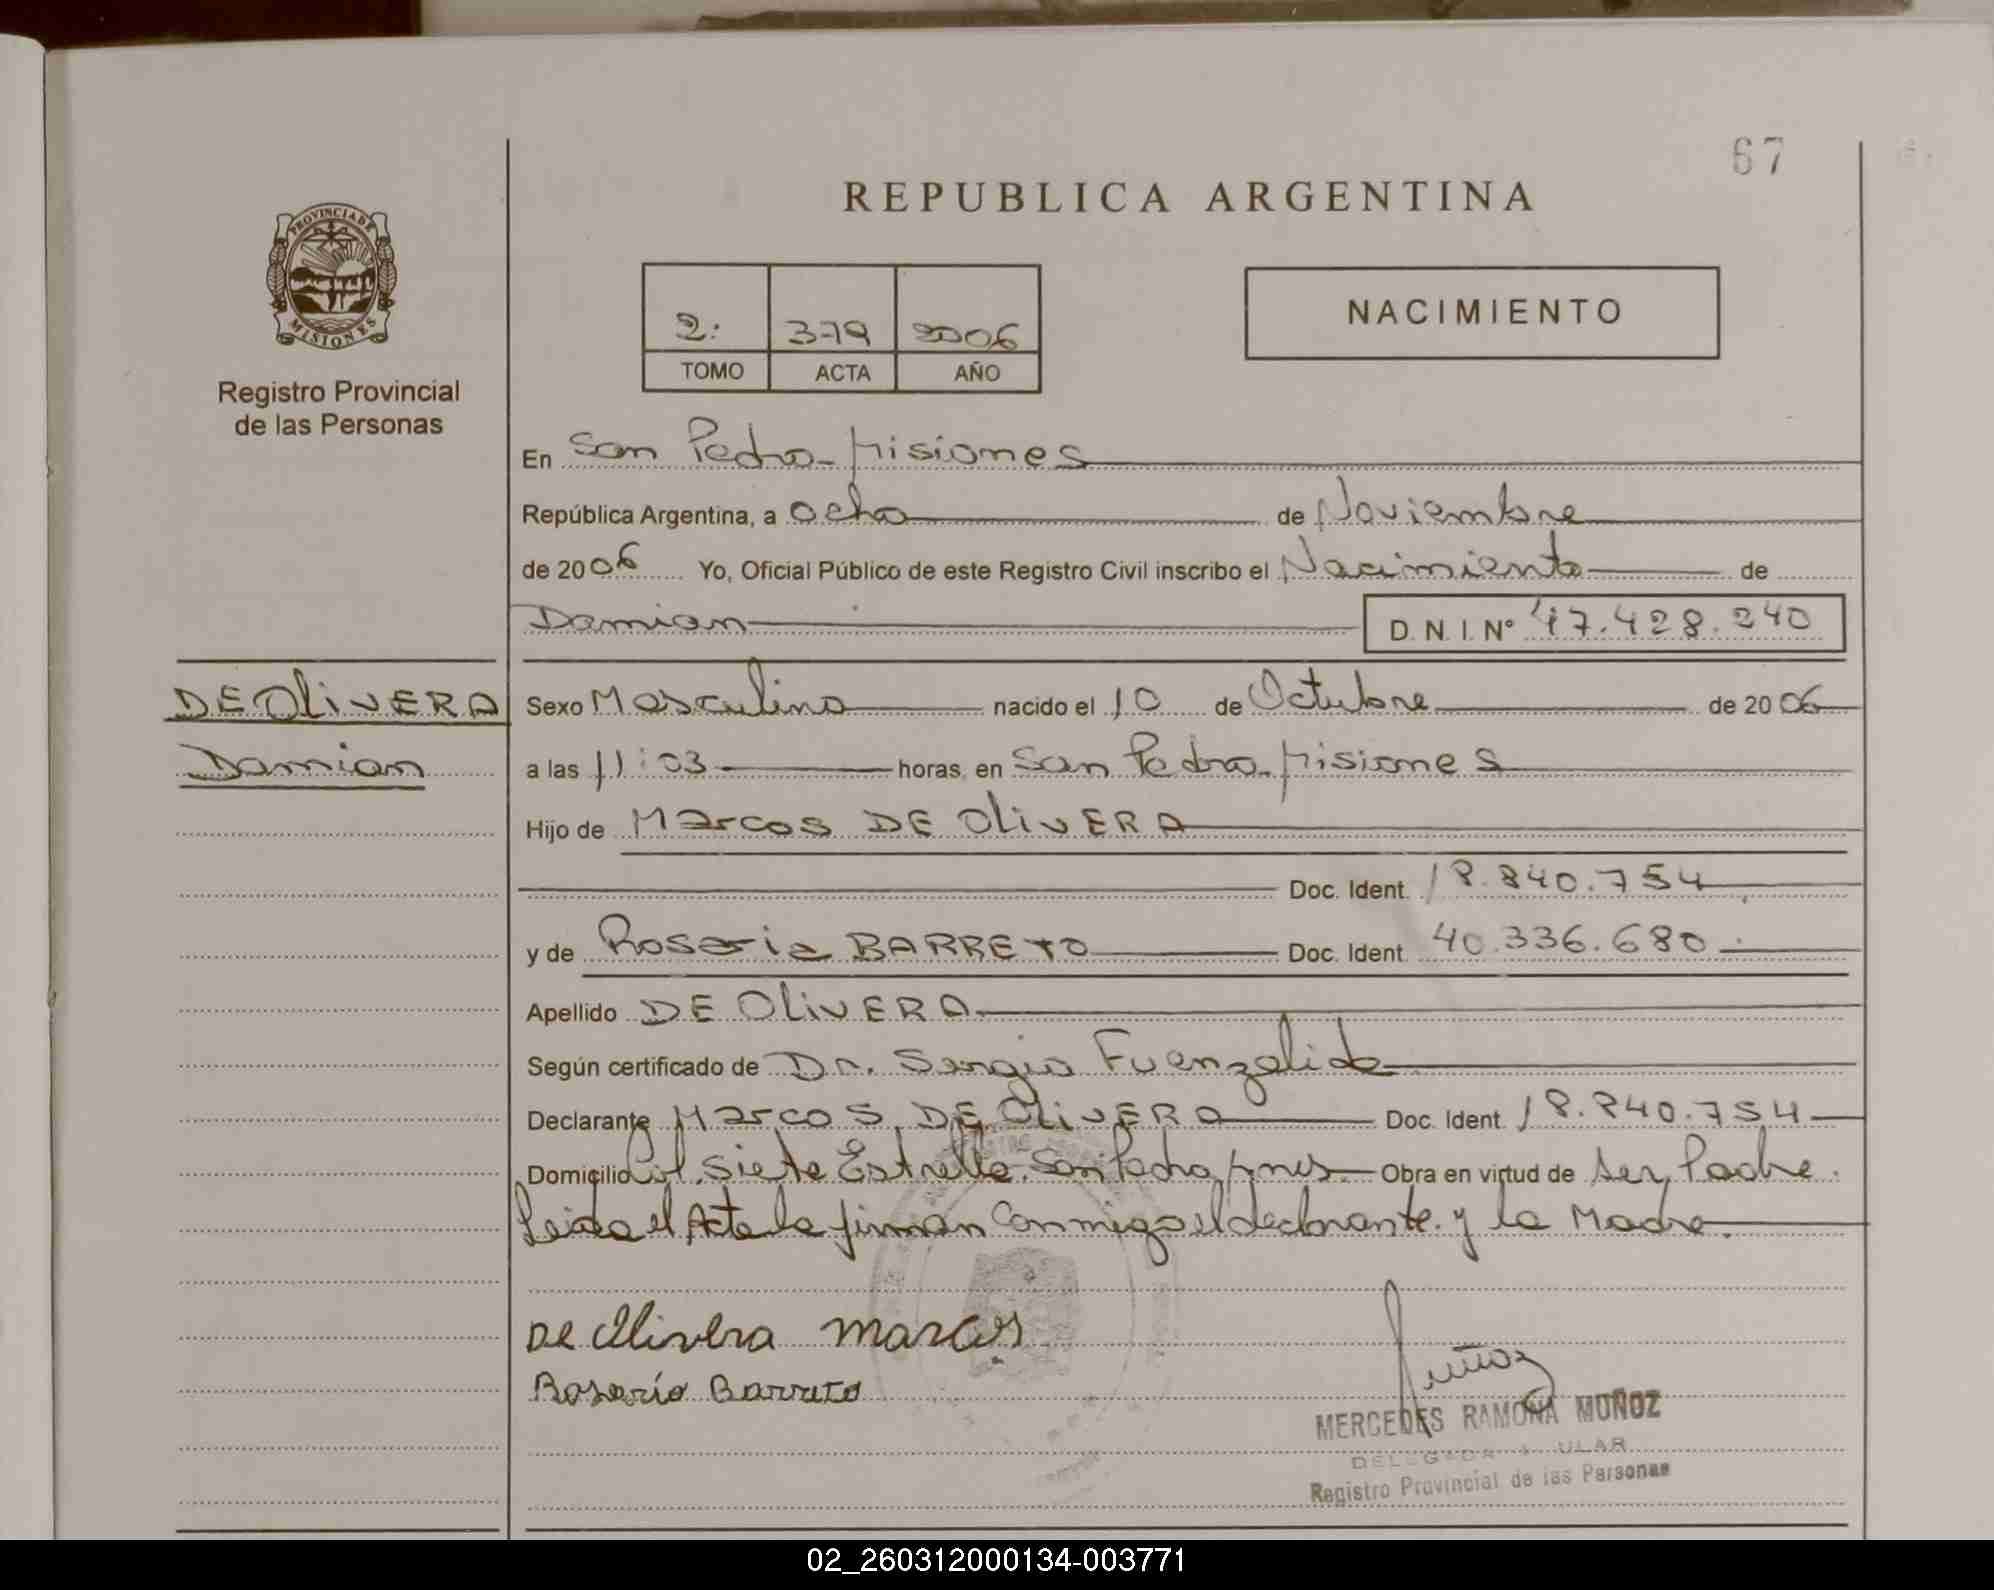 67
REPUBLICA ARGENTINA
PROVINCIA DE
MISIONES
Registro Provincial
de las Personas
2: 379 2006
TOMO ACTA AÑO
NACIMIENTO
En San Pedro - Misiones
República Argentina, a ocho de Noviembre
de 2006 Yo, Oficial Público de este Registro Civil inscribo el Nacimiento de
Damian D. N. I. Nº 47.428.240
DE OliVERA
Damian
Sexo Masculino nacido el 10 de Octubre de 2006
a las 11:03 horas, en San Pedro - Misiones
Hijo de Marcos DE OliVERA
Doc. Ident. 18.840.754
y de Rosaria BARRETO Doc. Ident. 40.336.680
Apellido DE OliVERA
Según certificado de Dr. Sergio Fuenzalida
Declarante Marcos DE OliVERA Doc. Ident. 18.840.754
Domicilio Col. Siete Estrella. San Pedro, Mnes. Obra en virtud de ser Padre.
Leida el Acta la firman conmigo el declarante y la Madre.
De Olivera Marcos
Rosario Barreto
Muñoz
MERCEDES RAMONA MUÑOZ
Registro Provincial de las Personas
02_260312000134-003771